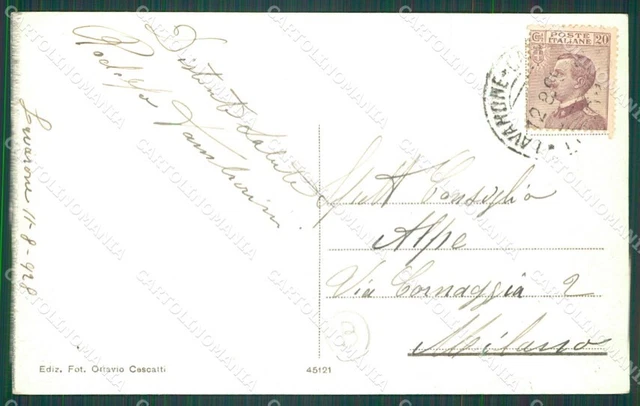 Distinti Saluti
Rodolfo
Lavarone 11-8-928
POSTE ITALIANE
20
LAVARONE
Spett Consiglio
Alpe
Via Cornaggia 2
Milano
Ediz. Fot. Ottavio Cescatti
45121
CARTOLINOMANIA